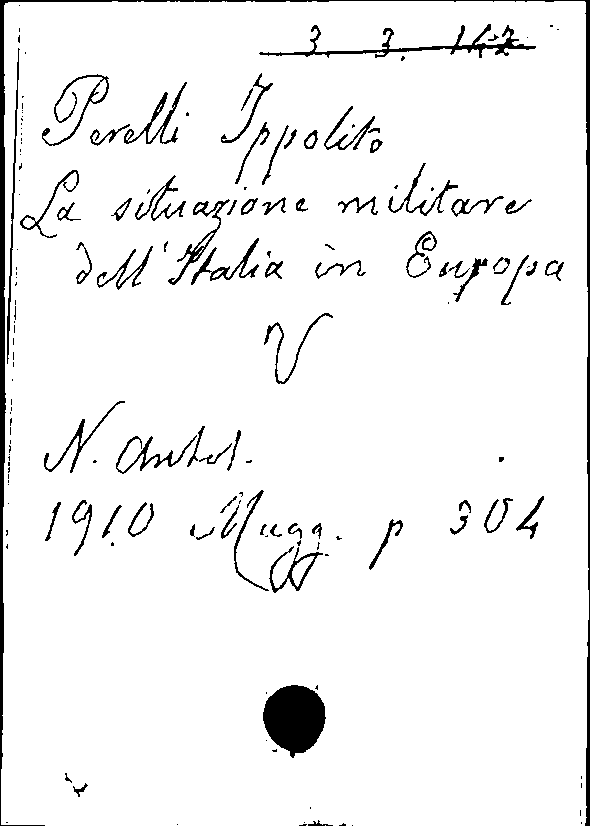 3. 3. 147
Perelli Ippolito
La situazione militare
dell'Italia in Europa
V
N. Antol.
1910 Magg. p 304